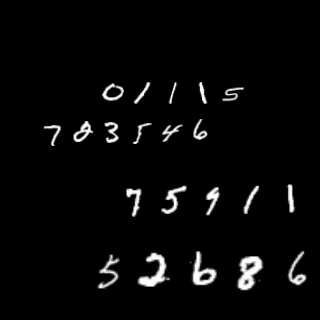 01115
783546
75911
52686